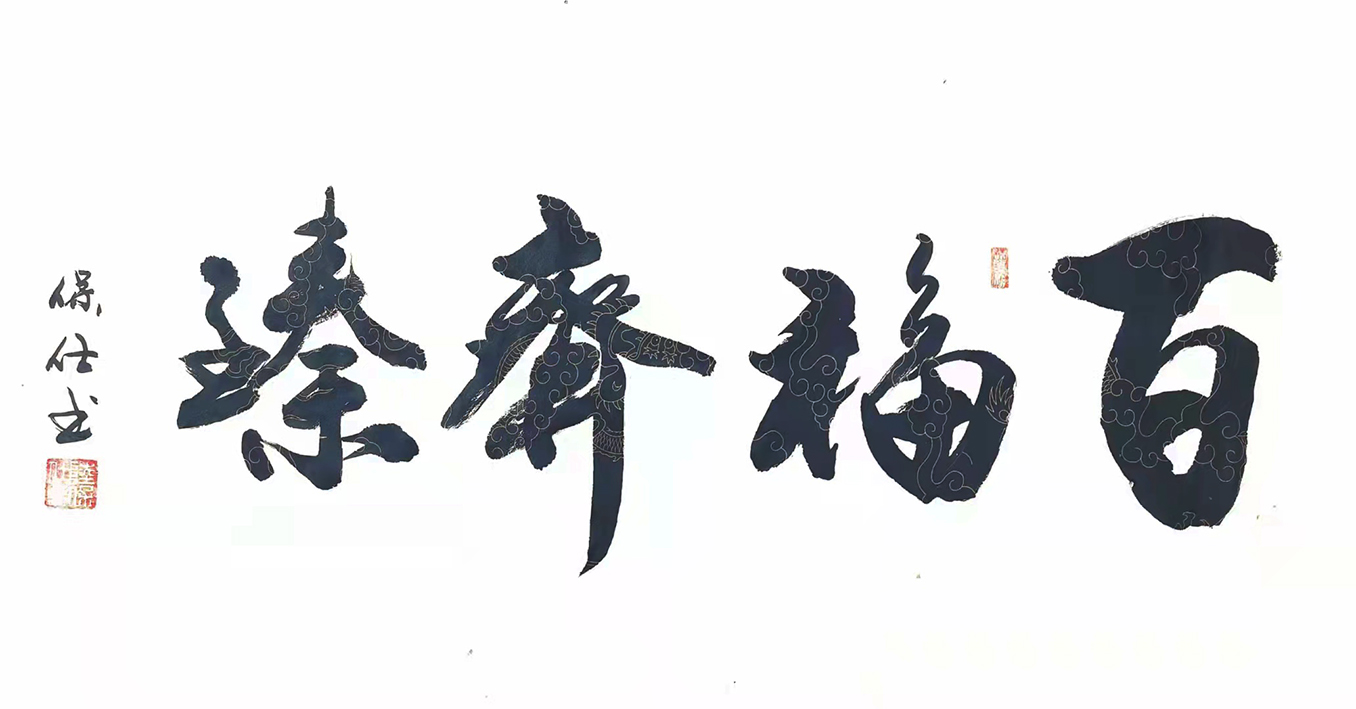 百福齊臻
保仕书